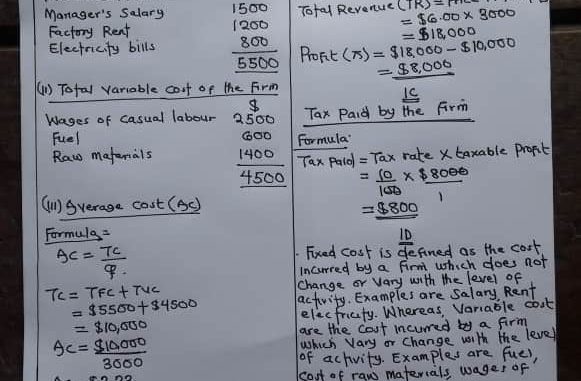 Manager's Salary 1500
Factory Rent 1200
Electricity bills 800
5500
(ii) Total Variable cost of the Firm
$
Wages of casual labour 2500
Fuel 600
Raw materials 1400
4500
(iii) Average cost (AC)
Formula =
AC = TC
Q.
TC = TFC + TVC
= $5500 + $4500
= $10,000
AC = $10,000
3000
Total Revenue (TR) =
= $6.00 x 3000
= $18,000
Profit (π) = $18,000 - $10,000
= $8,000
1C
Tax Paid by the Firm
Formula:
Tax Paid = Tax rate x taxable Profit
= 10 x $8000
100 1
= $800
1D
Fixed cost is defined as the cost
incurred by a firm which does not
change or vary with the level of
activity. Examples are Salary, Rent,
electricity. Whereas, Variable cost
are the cost incurred by a firm
which vary or change with the level
of activity. Examples are fuel,
cost of raw materials, wages of